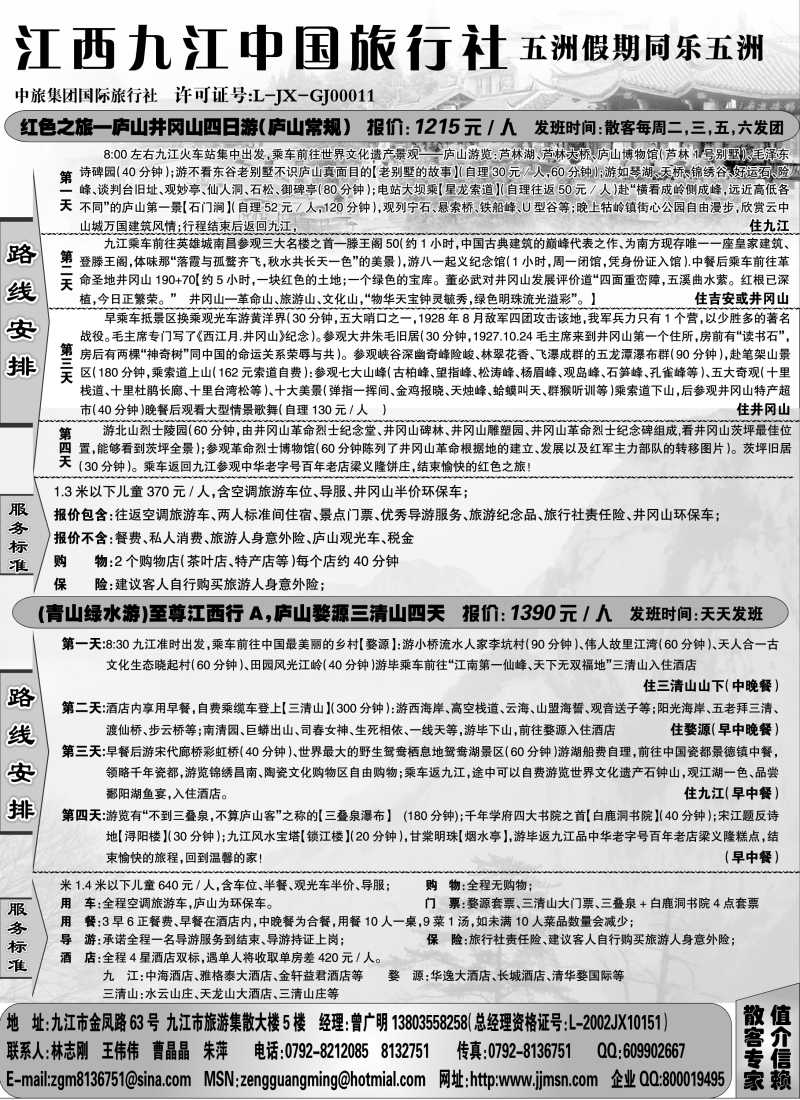 江西九江中国旅行社 五洲假期同乐五洲
中旅集团国际旅行社 许可证号:L-JX-GJ00011
红色之旅—庐山井冈山四日游(庐山常规) 报价:1215元/人 发班时间:散客每周二,三,五,六发团
路线安排
第一天
8:00左右九江火车站集中出发,乘车前往世界文化遗产景观——庐山游览:芦林湖、芦林大桥、庐山博物馆(芦林1号别墅)、毛泽东
诗碑园(40分钟);游不看东谷老别墅不识庐山真面目的【老别墅的故事】(自理30元/人,60分钟);游如琴湖、天桥、锦绣谷、好运石、险
峰、谈判台旧址、观妙亭、仙人洞、石松、御碑亭(80分钟);电站大坝乘【星龙索道】(自理往返50元/人)赴“横看成岭侧成峰,远近高低各
不同”的庐山第一景【石门涧】(自理52元/人,120分钟),观列宁石、悬索桥、铁船峰、U型谷等;晚上牯岭镇街心公园自由漫步,欣赏云中
山城万国建筑风情;行程结束后返回九江, 住九江
第二天
九江乘车前往英雄城南昌参观三大名楼之首—滕王阁50(约1小时,中国古典建筑的巅峰代表之作、为南方现存唯一一座皇家建筑、
登滕王阁,体味那“落霞与孤鹜齐飞,秋水共长天一色”的美景),游八一起义纪念馆(1小时,周一闭馆,凭身份证入馆).中餐后乘车前往革
命圣地井冈山190+70【约5小时,一块红色的土地;一个绿色的宝库。董必武对井冈山发展评价道“四面重峦障,五溪曲水萦。红根已深
植,今日正繁荣。” 井冈山—革命山、旅游山、文化山,“物华天宝钟灵毓秀,绿色明珠流光溢彩”。】 住吉安或井冈山
第三天
早乘车抵景区换乘观光车游黄洋界(30分钟,五大哨口之一,1928年8月敌军四团攻击该地,我军兵力只有1个营,以少胜多的著名
战役。毛主席专门写了《西江月.井冈山》纪念)。参观大井朱毛旧居(30分钟,1927.10.24毛主席来到井冈山第一个住所,房前有“读书石”,
房后有两棵“神奇树”同中国的命运关系荣辱与共)。参观峡谷深幽奇峰险峻、林翠花香、飞瀑成群的五龙潭瀑布群(90分钟),赴笔架山景
区(180分钟,乘索道上山(162元索道自费);参观七大山峰(古柏峰、望指峰、松涛峰、杨眉峰、观岛峰、石笋峰、孔雀峰等)、五大奇观(十里
栈道、十里杜鹃长廊、十里台湾松等)、十大美景(弹指一挥间、金鸡报晓、天烛峰、蛤蟆叫天、群猴听训等)乘索道下山,后参观井冈山特产超
市(40分钟)晚餐后观看大型情景歌舞(自理130元/人 ) 住井冈山
第四天
游北山烈士陵园(60分钟,由井冈山革命烈士纪念堂、井冈山碑林、井冈山雕塑园、井冈山革命烈士纪念碑组成,看井冈山茨坪最佳位
置,能够看到茨坪全景);参观革命烈士博物馆(60分钟陈列了井冈山革命根据地的建立、发展以及红军主力部队的转移图片)。茨坪旧居
(30分钟)。乘车返回九江参观中华老字号百年老店梁义隆饼庄,结束愉快的红色之旅!
服务标准
1.3米以下儿童370元/人,含空调旅游车位、导服、井冈山半价环保车;
报价包含:往返空调旅游车、两人标准间住宿、景点门票、优秀导游服务、旅游纪念品、旅行社责任险、井冈山环保车;
报价不含:餐费、私人消费、旅游人身意外险、庐山观光车、税金
购 物:2个购物店(茶叶店、特产店等)每个店约40分钟
保 险:建议客人自行购买旅游人身意外险;
(青山绿水游)至尊江西行A,庐山婺源三清山四天 报价:1390元/人 发班时间:天天发班
路线安排
第一天:8:30九江准时出发,乘车前往中国最美丽的乡村【婺源】:游小桥流水人家李坑村(90分钟)、伟人故里江湾(60分钟)、天人合一古
文化生态晓起村(60分钟)、田园风光江岭(40分钟)游毕乘车前往“江南第一仙峰、天下无双福地”三清山入住酒店
住三清山山下(中晚餐)
第二天:酒店内享用早餐,自费乘缆车登上【三清山】(300分钟):游西海岸、高空栈道、云海、山盟海誓、观音送子等;阳光海岸、五老拜三清、
渡仙桥、步云桥等;南清园、巨蟒出山、司春女神、生死相依、一线天等,游毕下山,前往婺源入住酒店 住婺源(早中晚餐)
第三天:早餐后游宋代廊桥彩虹桥(40分钟)、世界最大的野生鸳鸯栖息地鸳鸯湖景区(60分钟)游湖船费自理,前往中国瓷都景德镇中餐,
领略千年瓷都,游览锦绣昌南、陶瓷文化购物区自由购物;乘车返九江,途中可以自费游览世界文化遗产石钟山,观江湖一色、品尝
鄱阳湖鱼宴,入住酒店。 住九江(早中餐)
第四天:游览有“不到三叠泉,不算庐山客”之称的【三叠泉瀑布】 (180分钟);千年学府四大书院之首【白鹿洞书院】(40分钟);宋江题反诗
地【浔阳楼】(30分钟);九江风水宝塔【锁江楼】(20分钟),甘棠明珠【烟水亭】,游毕返九江品中华老字号百年老店梁义隆糕点,结
束愉快的旅程,回到温馨的家! (早中餐)
服务标准
米1.4米以下儿童640元/人,含车位、半餐、观光车半价、导服; 购 物:全程无购物;
用 车:全程空调旅游车,庐山为环保车。 门 票:婺源套票、三清山大门票、三叠泉+白鹿洞书院4点套票
用 餐:3早6正餐费、早餐在酒店内,中晚餐为合餐,用餐10人一桌,9菜1汤,如未满10人菜品数量会减少;
导 游:承诺全程一名导游服务到结束、导游持证上岗; 保 险:旅行社责任险、建议客人自行购买旅游人身意外险;
酒 店:全程4星酒店双标,遇单人将收取单房差420元/人。
九 江:中海酒店、雅格泰大酒店、金轩益君酒店等 婺 源:华逸大酒店、长城酒店、清华婺国际等
三清山:水云山庄、天龙山大酒店、三清山庄等
地 址:九江市金凤路63号 九江市旅游集散大楼5楼 经理:曾广明13803558258(总经理资格证号:L-2002JX10151)
联系人:林志刚 王伟伟 曹晶晶 朱萍 电话:0792-8212085 8132751 传真:0792-8136751 QQ:609902667
E-mail:zgm8136751@sina.com MSN:zengguangming@hotmial.com 网址:http:www.jjmsn.com 企业QQ:800019495
值介信赖
散客专家